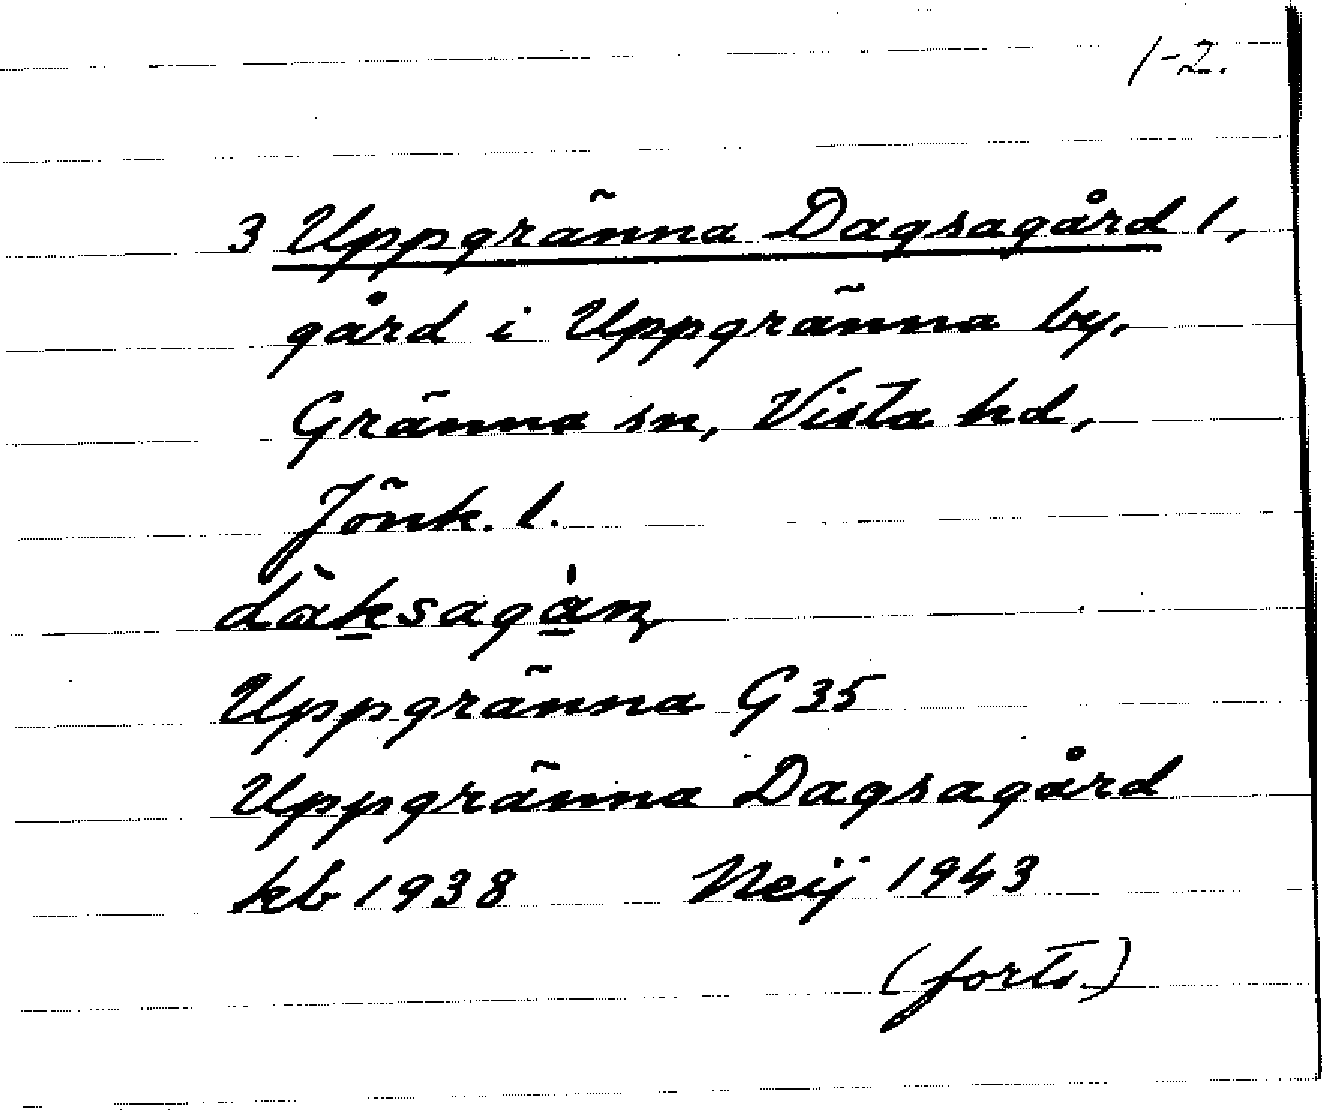 1-2.
3 Uppgränna Dagsagård 1,
gård i Uppgränna by,
Gränna sn, Vista hd,
Jönk. l.
Uppgränna G 35
Uppgränna Dagsagård
kb 1938 Neij 1943
(forts.)